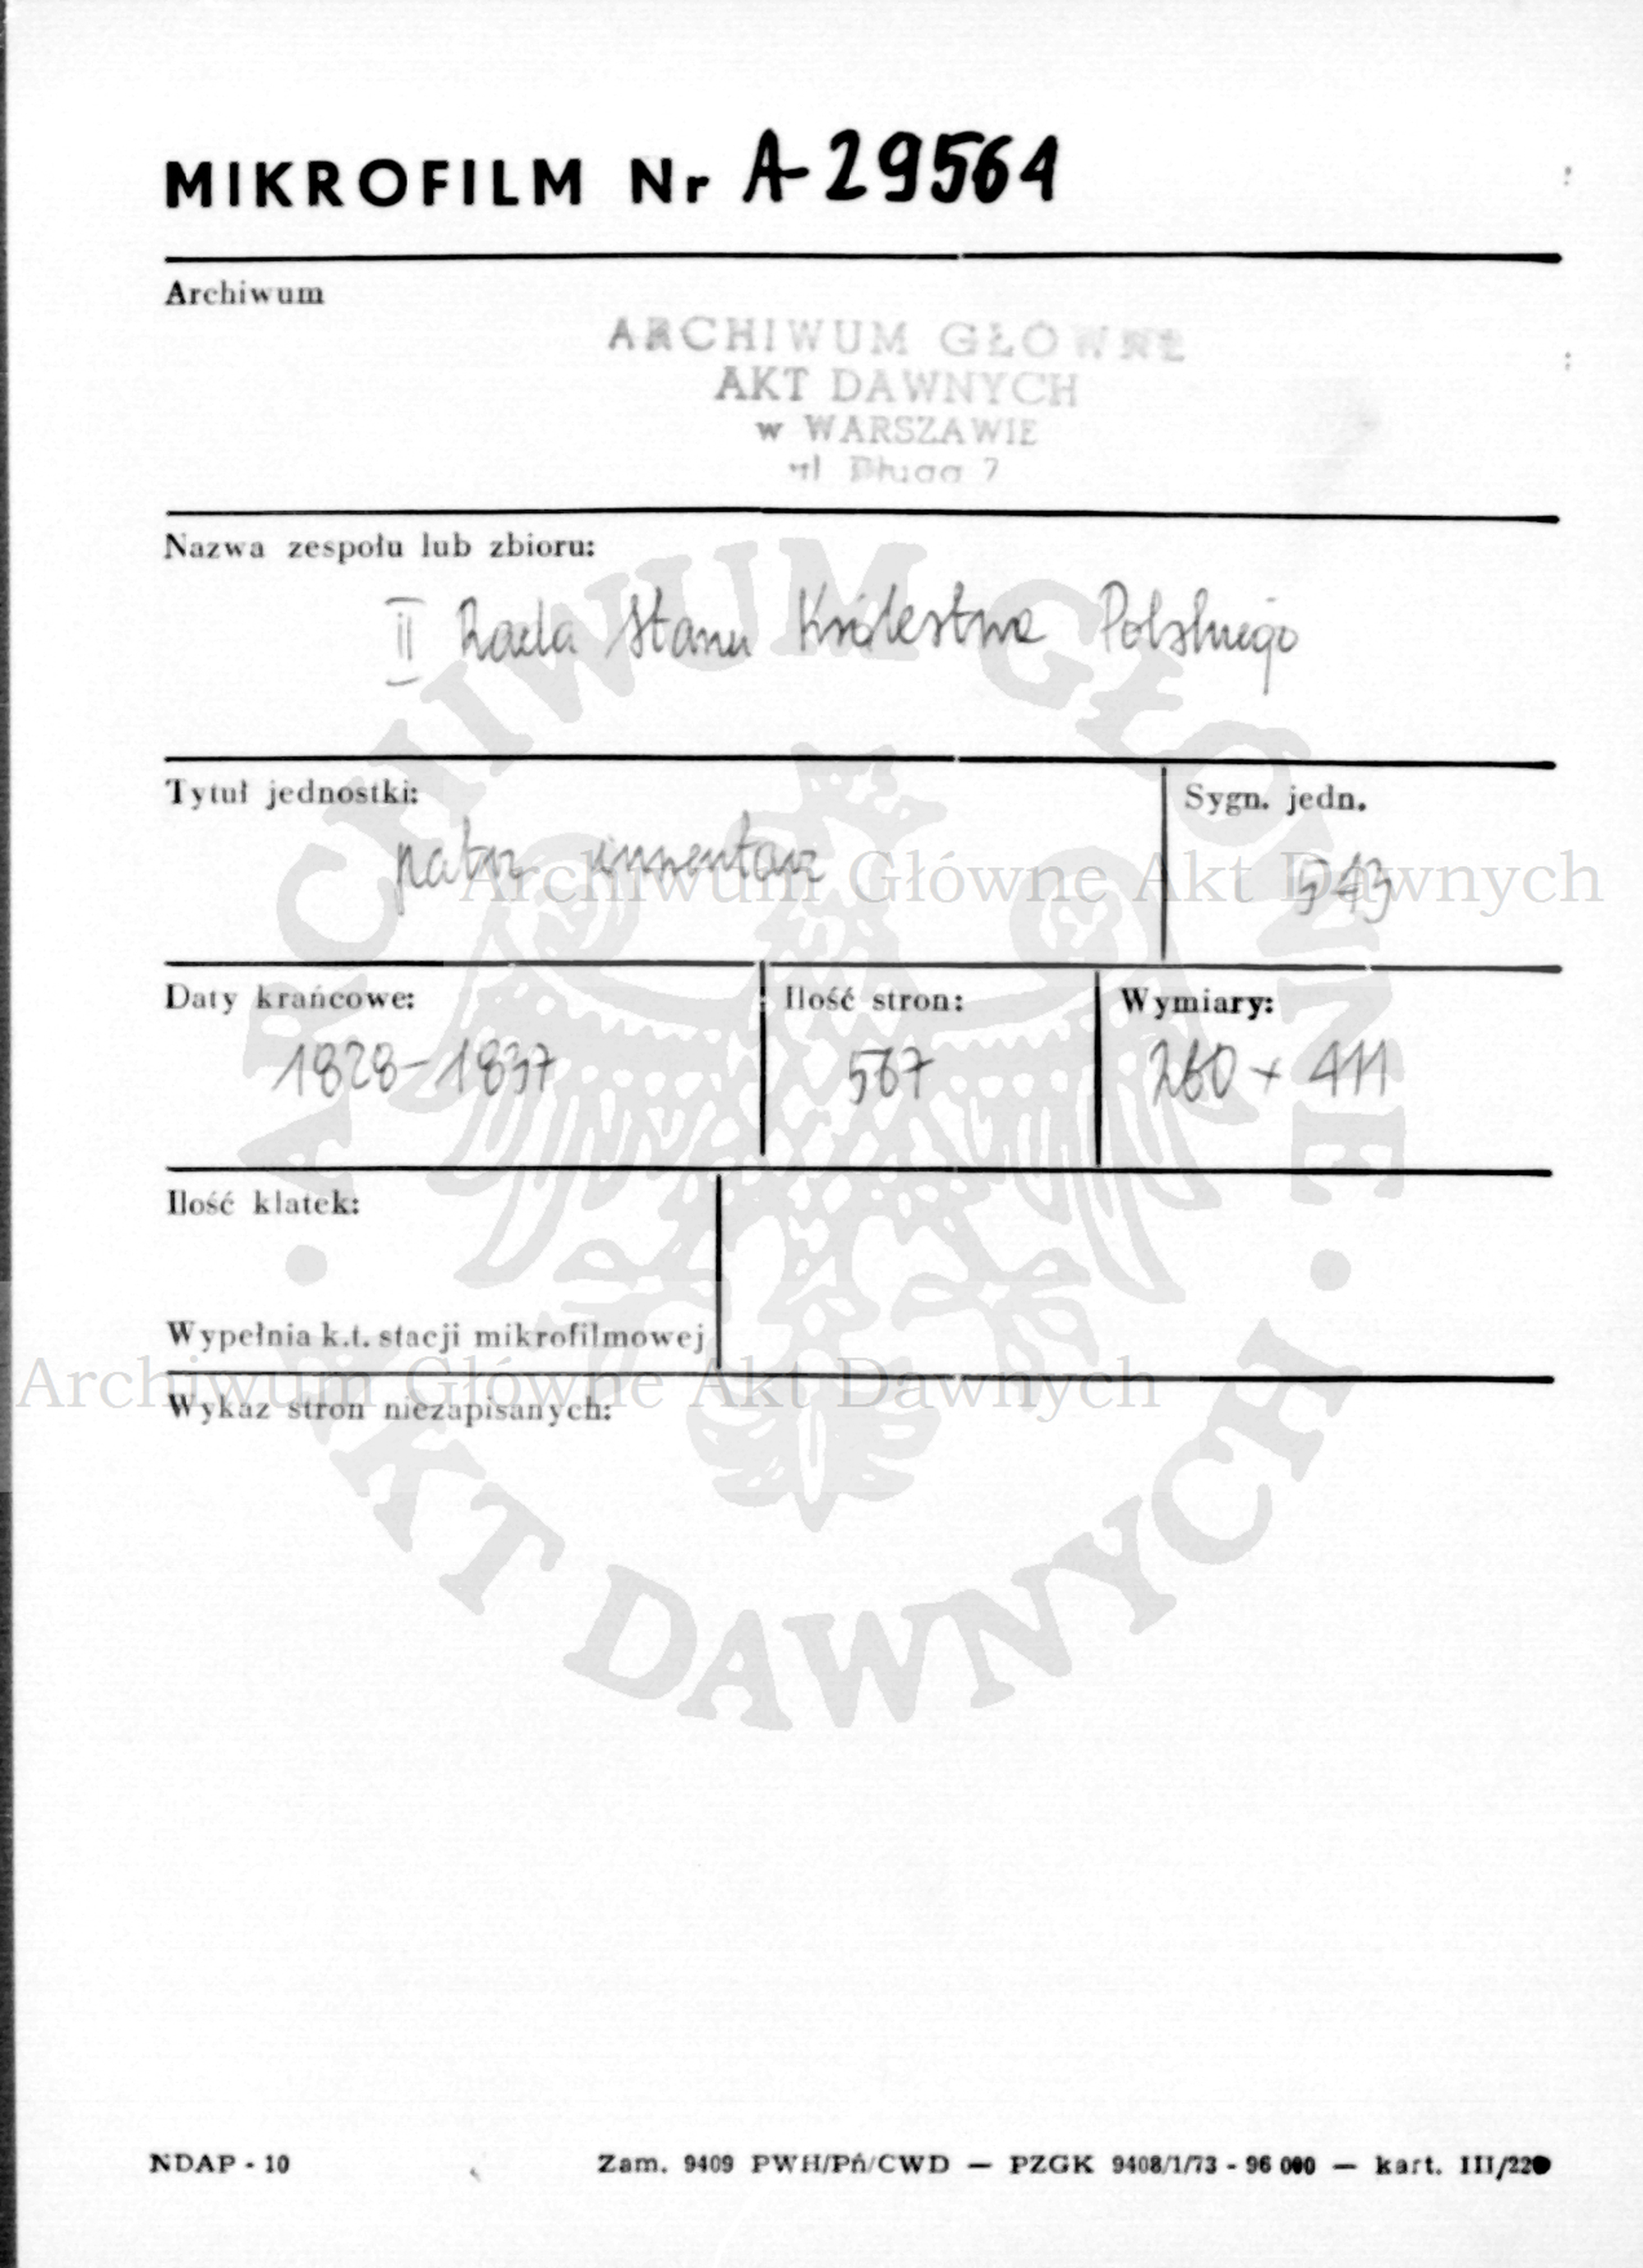 MIKROFILM Nr A-29564
Archiwum
ARCHIWUM GŁÓWNE
AKT DAWNYCH
w WARSZAWIE
ul Długa 7
Nazwa zespołu lub zbioru:
II Rada Stanu Królestwa Polskiego
Tytuł jednostki:
patrz inwentarz
Sygn. jedn.
543
Archiwum Główne Akt Dawnych
Daty krańcowe:
1828-1837
Ilość stron:
567
Wymiary:
260 x 411
Ilość klatek:
Wypełnia k.t. stacji mikrofilmowej
Archiwum Główne Akt Dawnych
Wykaz stron niezapisanych:
ARCHIWUM GŁÓWNE
AKT DAWNYCH
NDAP - 10
Zam. 9409 PWH/Pń/CWD — PZGK 9408/1/73 - 96 000 — kart. III/220